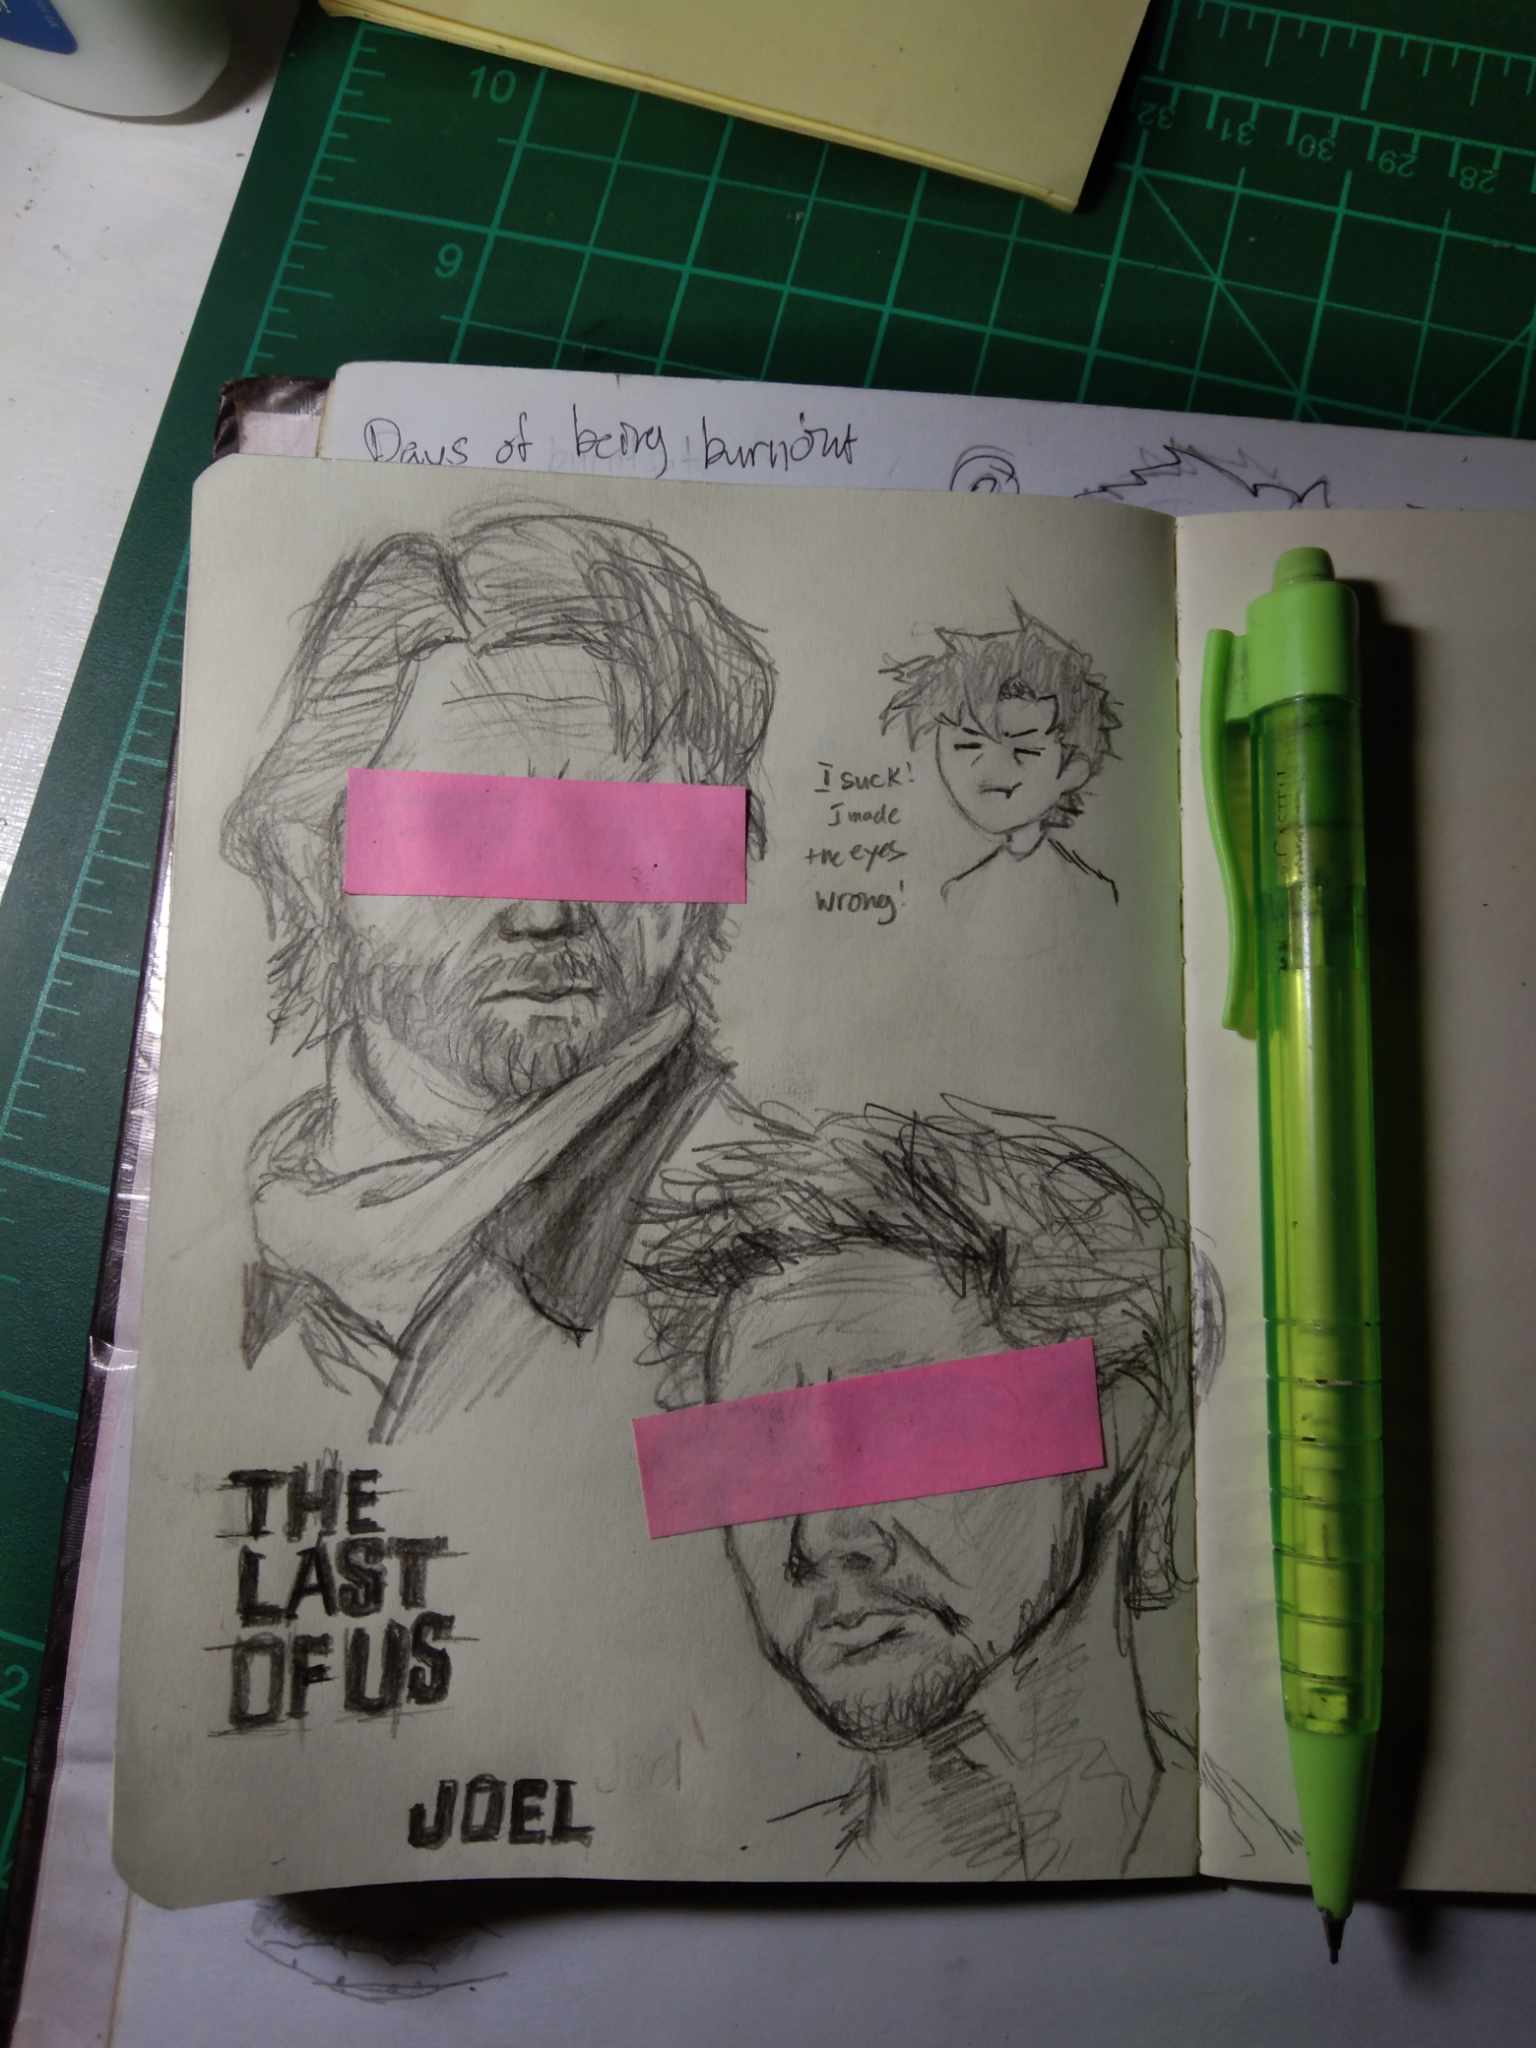 10
32 31 30 29 28
9
Days of being burnout
I suck!
I made
the eyes
wrong!
THE
LAST
OF US
Joel
JOEL
2